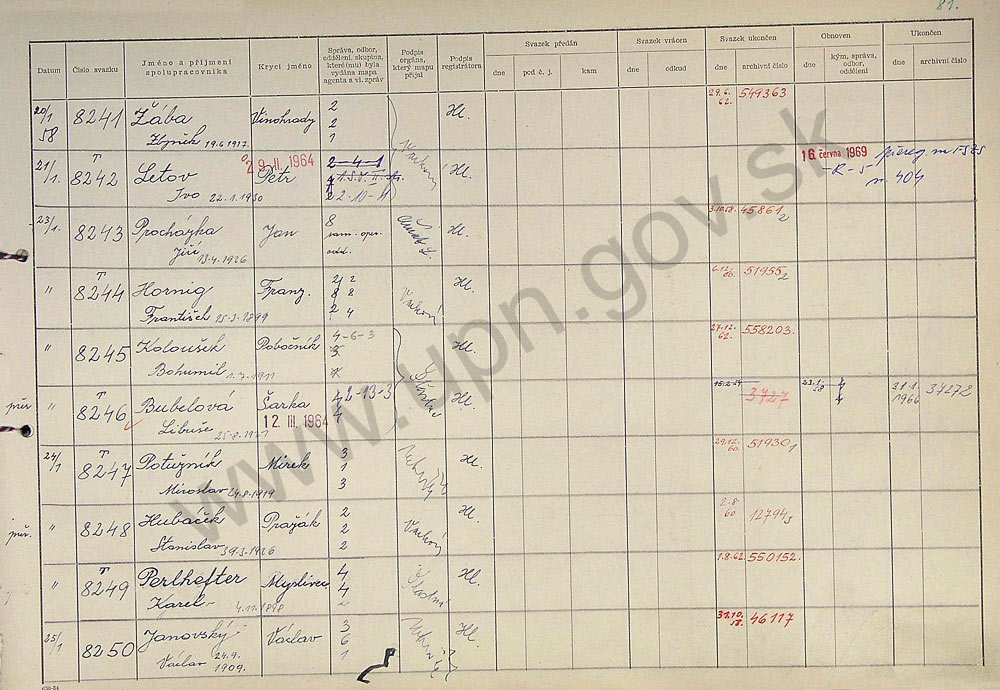 81.
Datum
Číslo svazku
Jméno a příjmení
spolupracovníka
Krycí jméno
Správa, odbor,
oddělení, skupina,
které(mu) byla
vydána mapa
agenta a vl. zpráv
Podpis
orgána,
který mapu
přijal
Podpis
registrátora
Svazek předán
dne
pod č. j.
kam
Svazek vrácen
dne
odkud
Svazek ukončen
dne
archivní číslo
Obnoven
dne
kým, správa,
odbor,
oddělení
Ukončen
dne
archivní číslo
20/1 58 8241 Žába Vinohrady 2 2 1 Hl. 29.6. 62. 549363
Zbyněk 19.6.1917.
21/1. T 8242 Letov Petr 29. II. 1964 2-4-1 2-10-A Hl. 16. června 1969
Ivo 22.1.1930
-R-5
23/1. 8243 Procházka Jan 8 sam. oper. odd. Hl. 3.10.58. 45861/2
Jiří 13.4.1926
" T 8244 Hornig Franz. 2 8 2 2 4 Hl. 6.12. 60. 51955/2
František 25.3.1899
" 8245 Koloušek Pobočník 4-6-3 Hl. 27.12. 62. 558203.
Bohumil
přer. " T 8246 Bubelová Šarka 2-13-3 4 4 Hl. 3727 23.1. 58 31.1. 1966 37272
Libuše 12. III. 1964
24/1 T 8247 Potužník Mirek 3 1 3 Hl. 29.12. 60. 51930/1
Miroslav 24.8.1919
přer. " 8248 Hubaček Pražák 2 2 2 Vaškový Hl. 2.8. 60 12794/3
Stanislav 39.3.1926
" T 8249 Perlhefter Myslivec 4 4 2 Šťastní Hl. 1.8.62. 550152.
Karel 4.11.1898
25/1 8250 Janovský Václav 3 6 1 Hl. 31.10. 58. 46117
Václav 24.9. 1909.
www.upn.gov.sk